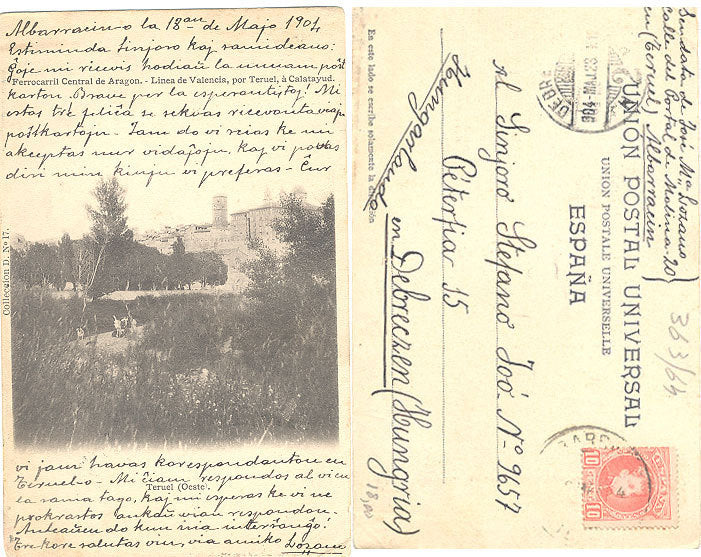 Albarracin-o la 18an de Majo 1904
Estiminda Sinjoro kaj samideano:
Ĝoje mi ricevis hodiaŭ la unuan poŝt
Ferrocarril Central de Aragon. - Linea de Valencia, por Teruel, á Calatayud.
karton. Brave per la esperantistoj! Mi
estas tre feliĉa se sekvas ricevonta viajn
poŝtkartojn. Jam do vi scias ke mi
akceptas nur vidaĵojn, kaj vi povas
diri min kiujn vi preferas - Ĉar
Collección D. Nº 17.
vi jam havas korespondanton en
Teruel-o - Mi ĉiam respondos al vi en
Teruel (Oeste).
la sama tago, kaj mi esperas ke vi ne
prokrastos ankaŭ vian respondon.
Antaŭen do kun nia interŝanĝo!
Tre kore salutas vin, via amiko Lozano
En este lado se escribe solamente la dirección
Hungarlando
Al Sinjoro Stefano Joó Nº 9657
Péterfia 15
en Debreczen (Hungria)
18,00
UNIÓN POSTAL UNIVERSAL
UNION POSTALE UNIVERSELLE
ESPAÑA
Sendata de José Mª Lozano
calle del Portal de Molina 20
en (Teruel) Albarracin
363/64
10
10